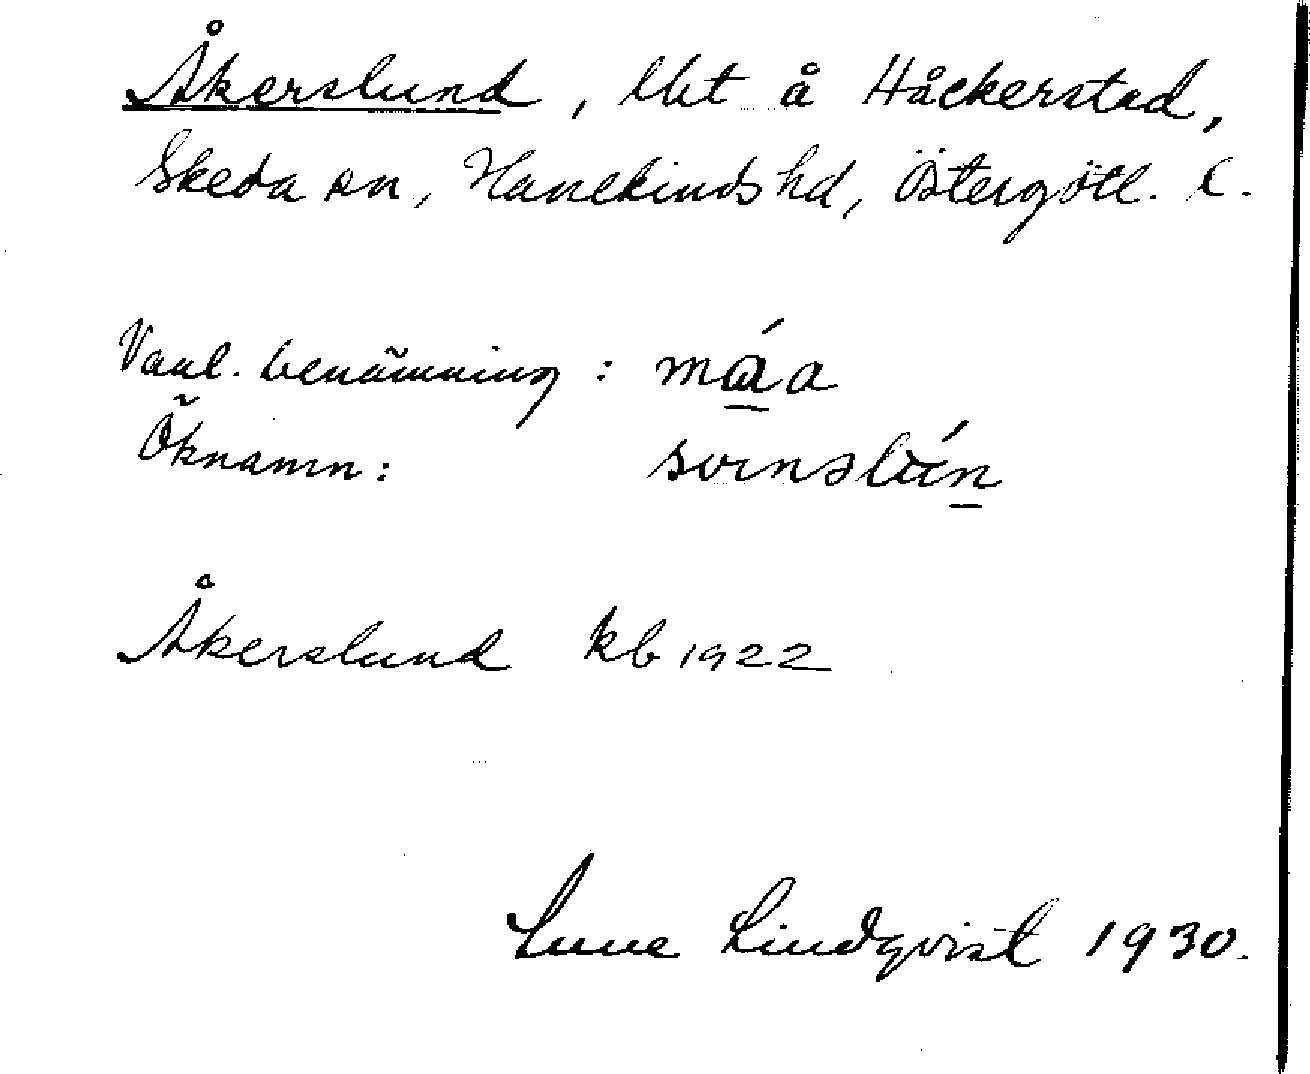 Åkerslund, lht å Håckerstad,
Skeda sn, Hanekinds hd, Östergötl. l.
Vanl. benämning: máa
Öknamn: svinslún
Åkerslund kb 1922
Sune Lindqvist 1930.